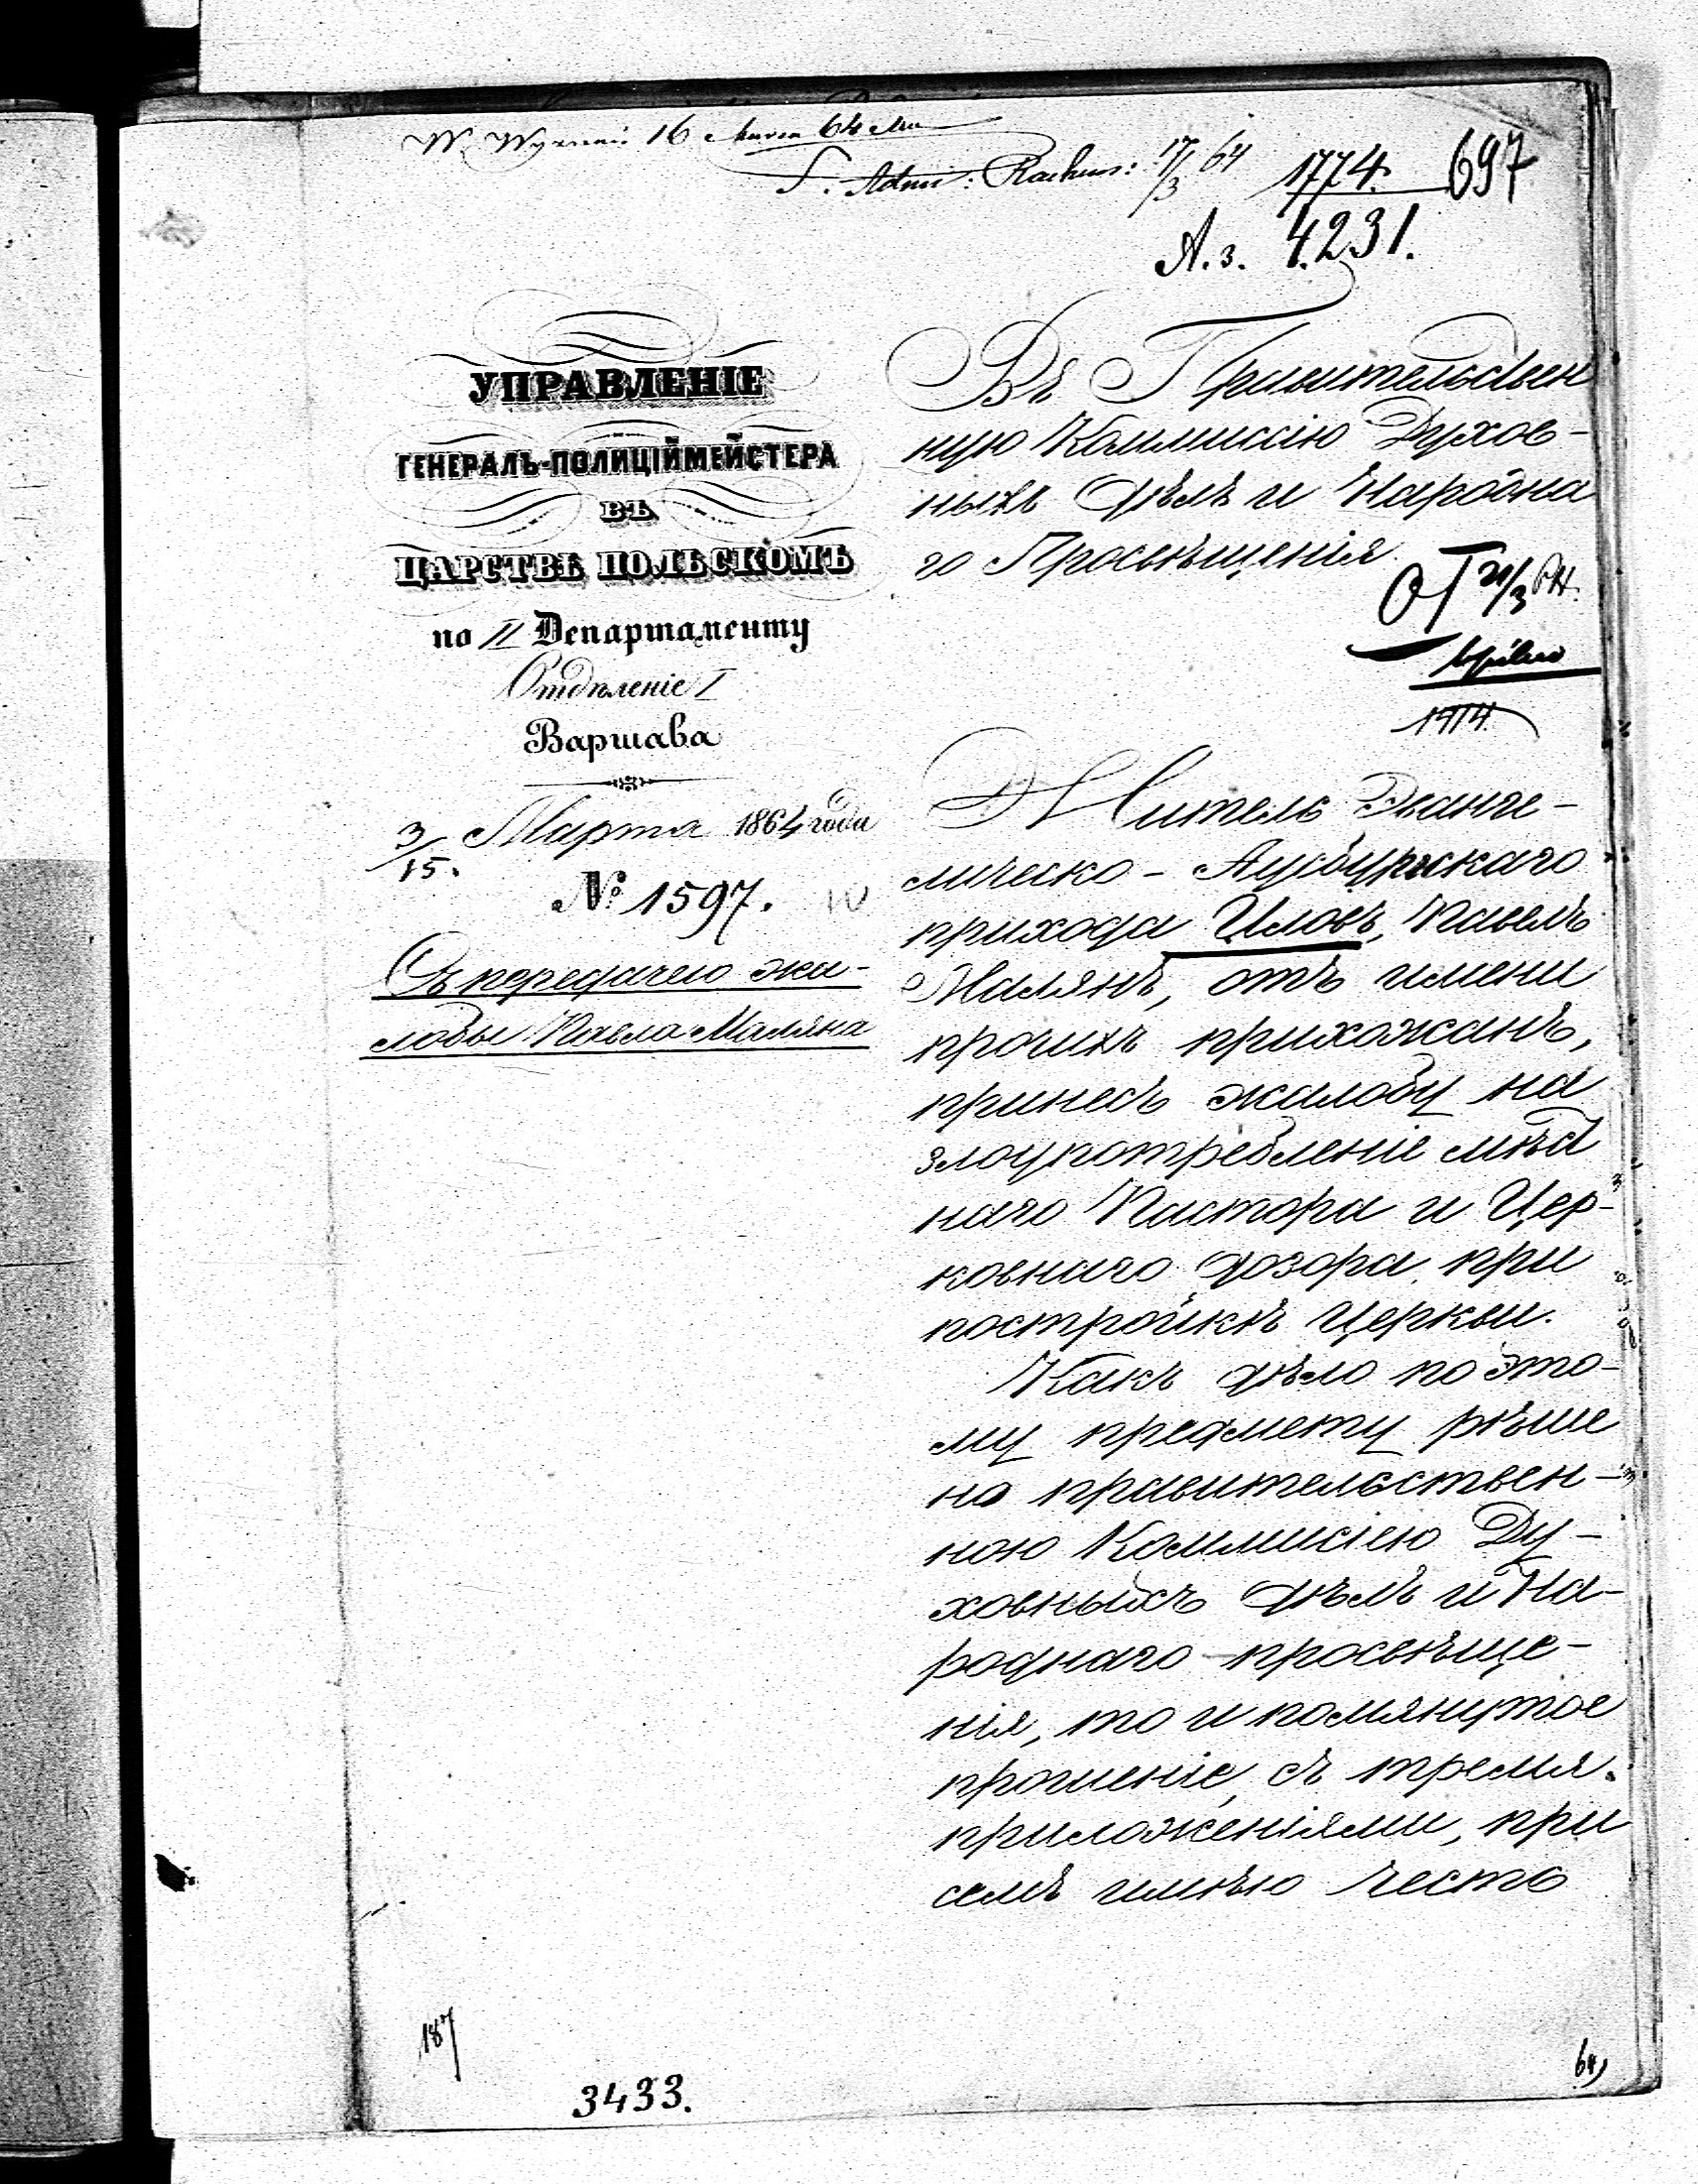 16 64
17/3 64 1774. 697
А.з. 4231.
УПРАВЛЕНІЕ
ГЕНЕРАЛЪ-ПОЛИЦІЙМЕЙСТЕРА
ВЪ
ЦАРСТВѢ ПОЛЬСКОМЪ
по II Департаменту
Отдѣленіе I
Варшава
3/15. Марта 1864 года
№ 1597.
Съ передачею жа-
лобы Павла Маляна
Въ Правительствен
ную Коммиссію Духов-
ныхъ Дѣлъ и Народна
го Просвѣщенія.
21/3
Житель Еванге-
лическо-Аугсбургскаго
прихода Иловъ, Павелъ
Малянъ, отъ имени
прочихъ прихожанъ,
принесъ жалобу на
злоупотребленіе мѣст
наго Пастора и Цер-
ковнаго Дозора при
постройкѣ Церкви.
Какъ дѣло по это-
му предмету рѣше
но правительствен-
ною Коммисіею Ду-
ховныхъ Дѣлъ и На-
роднаго просвѣще-
нія, то и помянутое
прошеніе, съ тремя
приложеніями, при
семъ имѣю честь
187
3433.